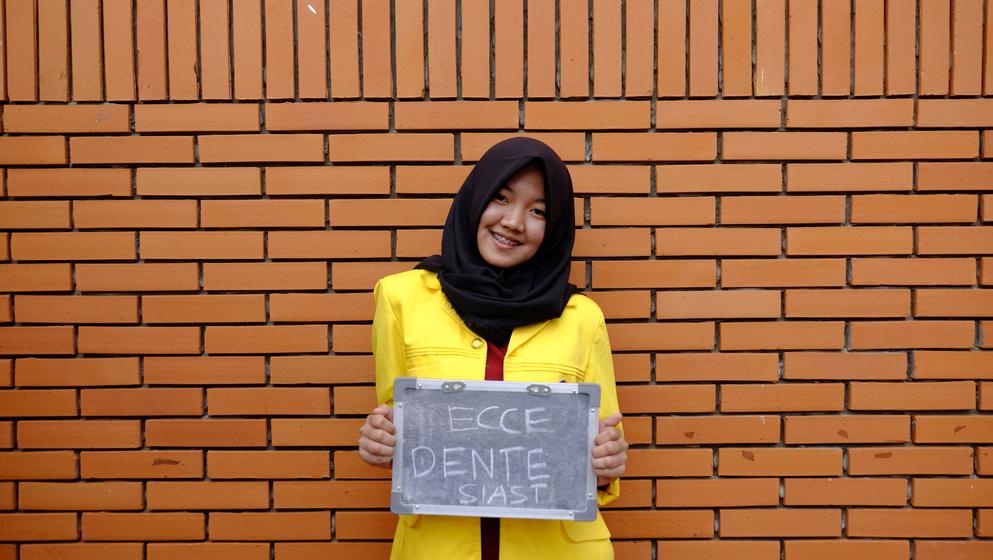 ECCE
DENTE
SIAST